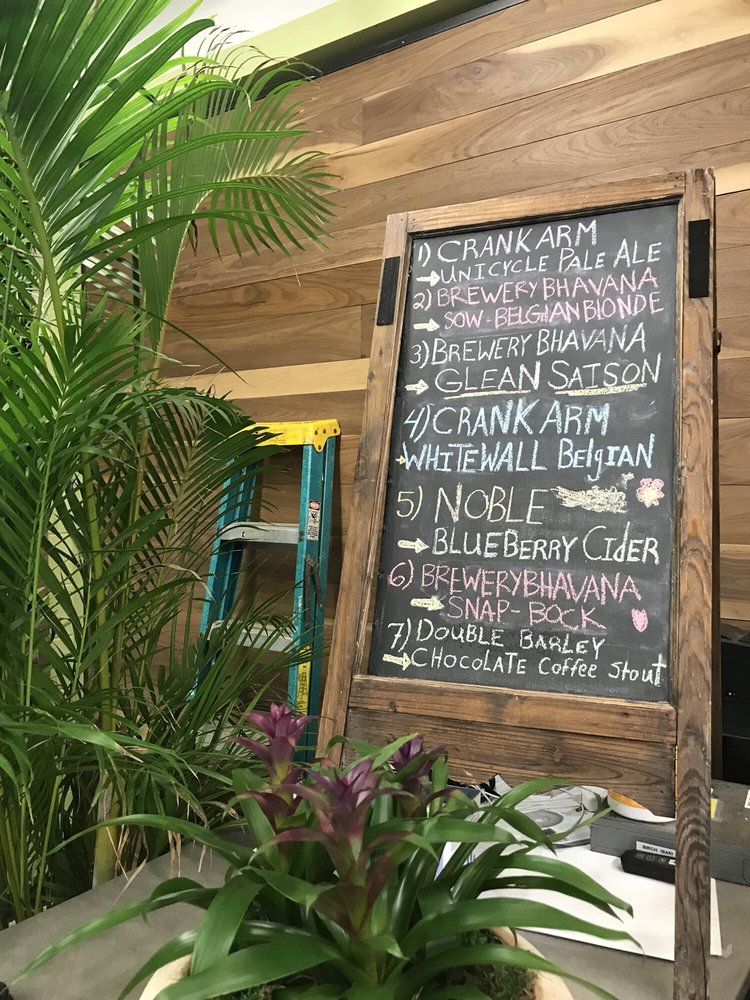 1) CRANK ARM
→ UNICYCLE PALE ALE
2) BREWERY BHAVANA
→ SOW - BELGIAN BLONDE
3) BREWERY BHAVANA
→ GLEAN SATSON
4) CRANK ARM
→ WHITEWALL BELGIAN
5) NOBLE
→ BLUEBERRY CIDER
6) BREWERY BHAVANA
→ SNAP-BOCK
7) DOUBLE BARLEY
→ CHOCOLATE COFFEE STOUT
BIRCH (BAR)